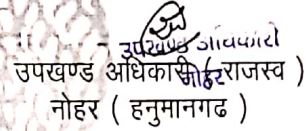 उपखण्ड अधिकारी
उपखण्ड अधिकारी (राजस्व)
नोहर
नोहर ( हनुमानगढ )